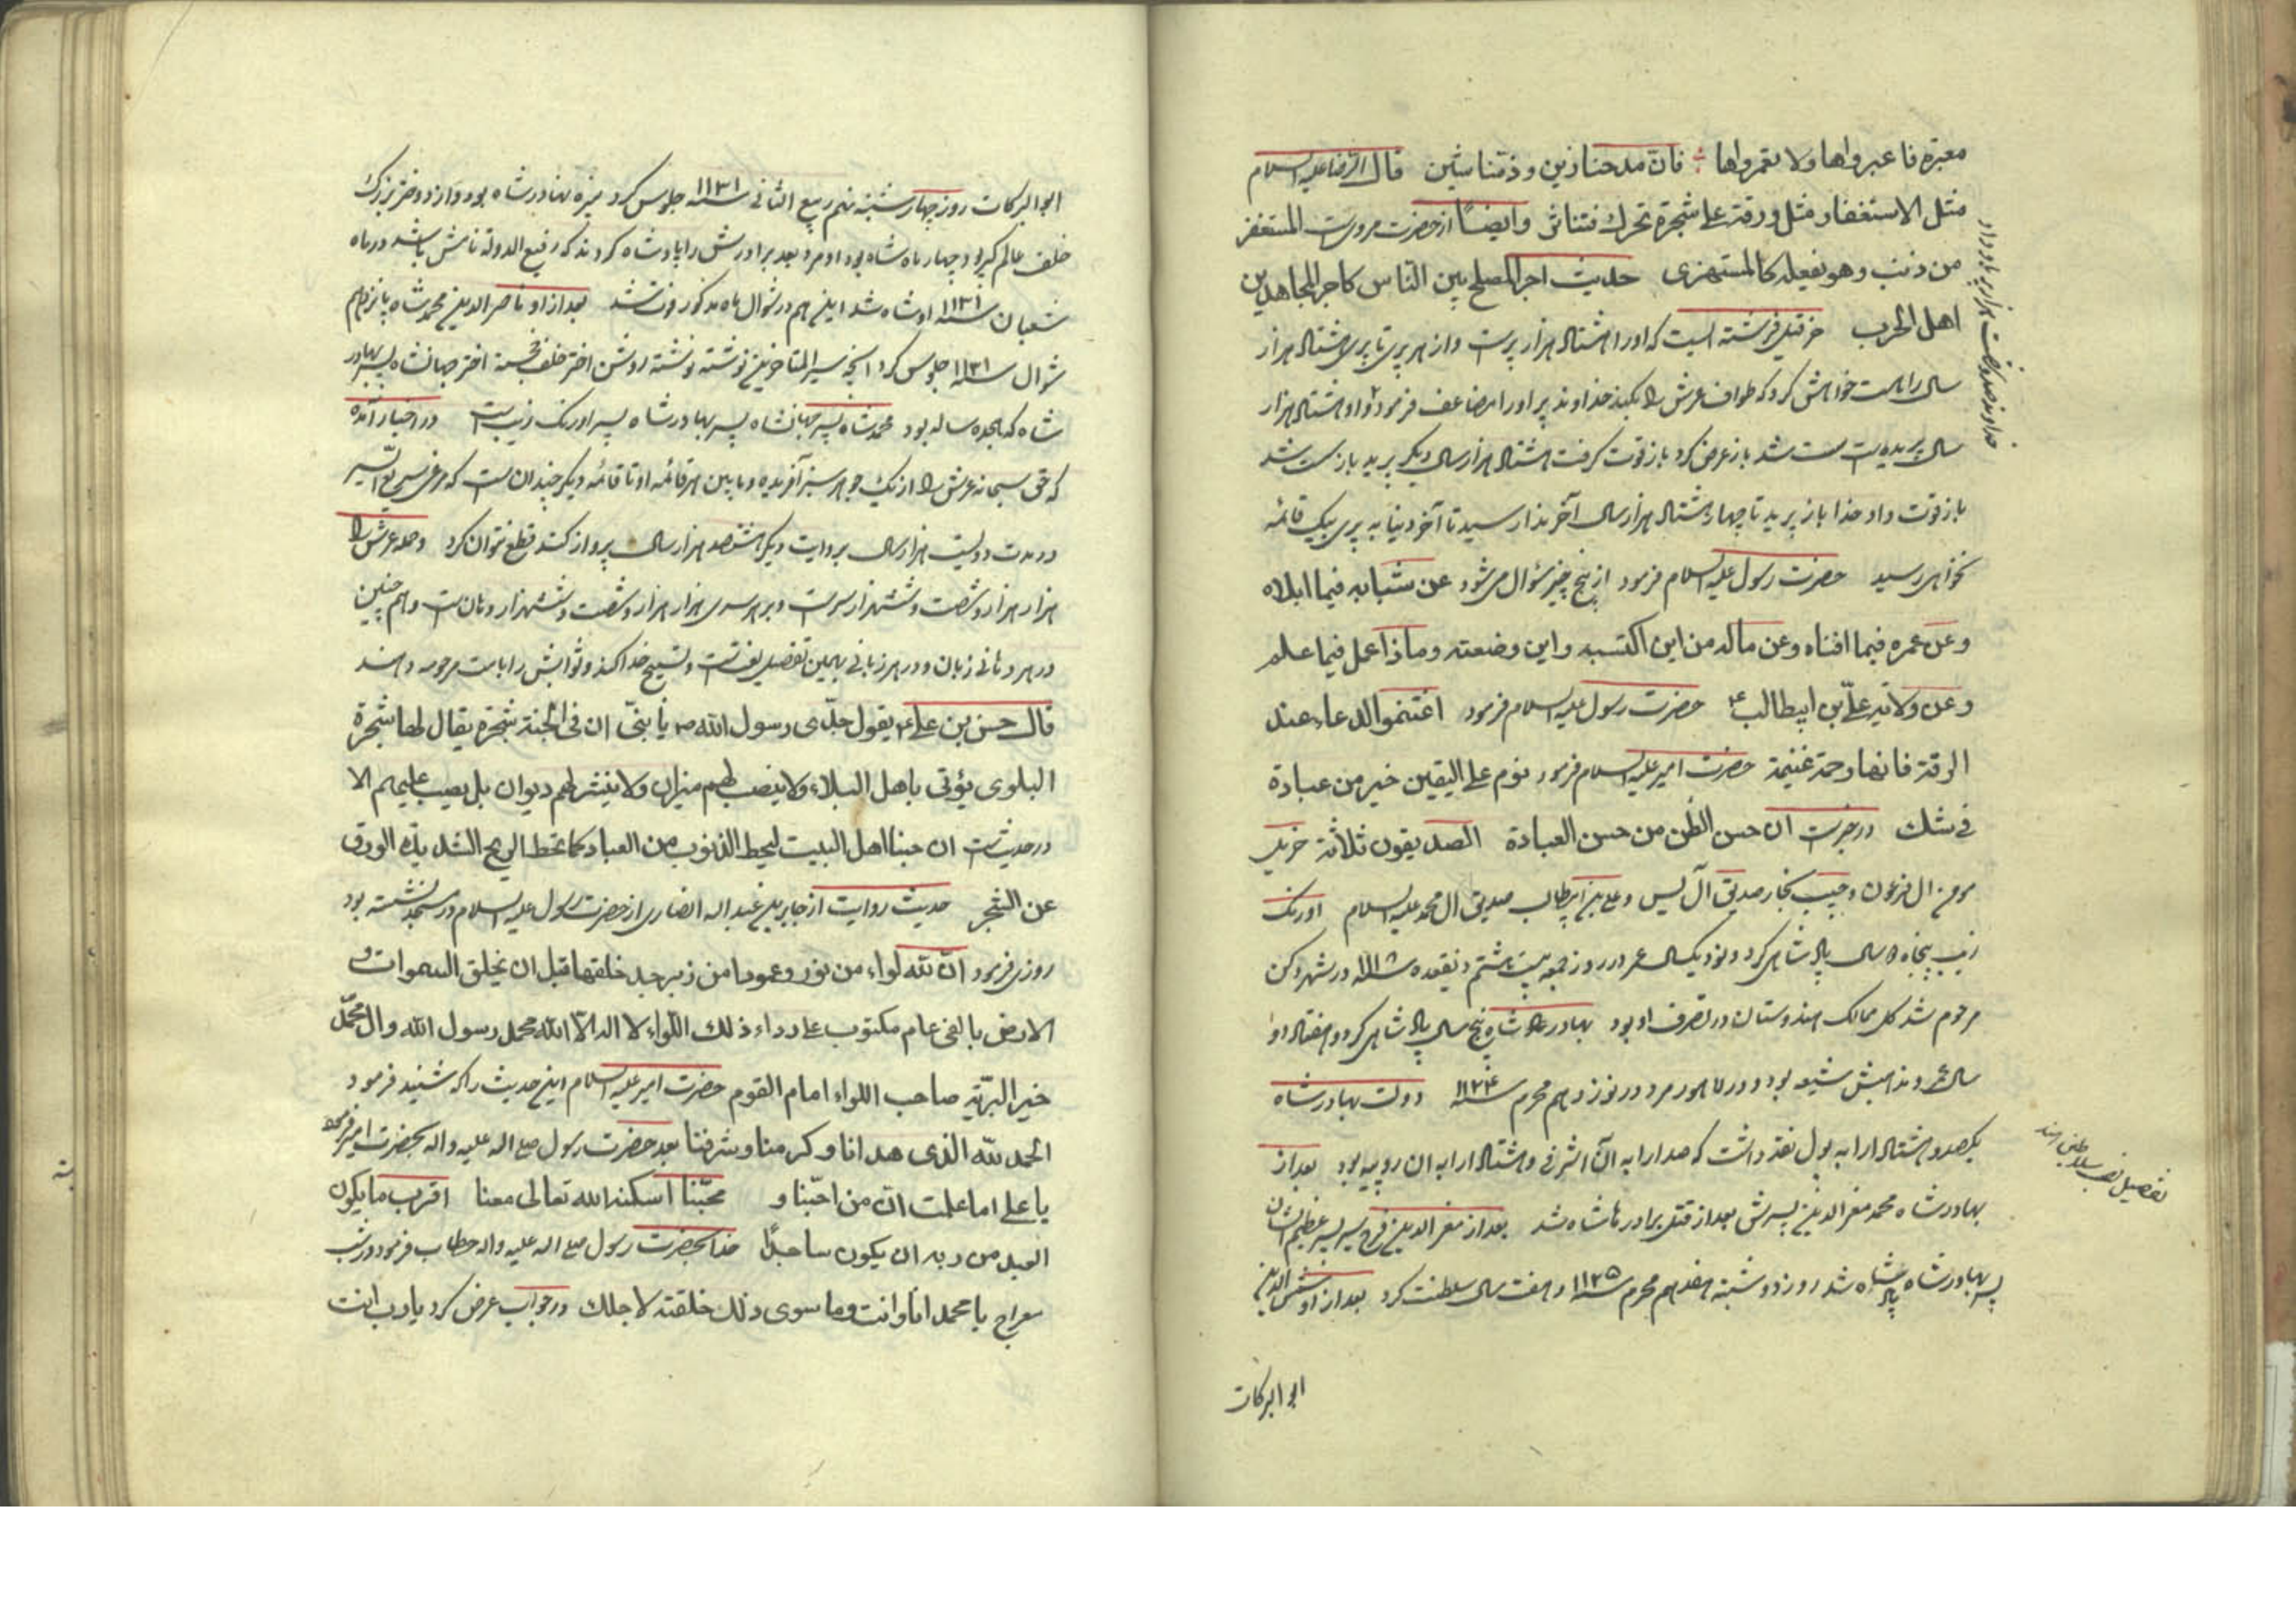 معبرة فاعبروها ولا تعمروها فان مدحنا زين وذمنا شين قال الرضا عليه السلام
مثل الاستغفار مثل ورقة على شجرة تحرك فتناثر وايضاً از حضرت مرويست المستغفر
من ذنب وهو يفعله كالمستهزى حديث اجر المصلح بين الناس كاجر المجاهدين
اهل الحرب خرقئیل فرشته ایست که او را هشتاد هزار پرست و از هر پری تا پری هشتاد هزار
سال راهست خواهش کرد که طواف عرش را بکند خداوند پر او را مضاعف فرمود و او هشتاد هزار
سال پریده سست شد باز عرض کرد باز قوت گرفت هشتاد هزار سال دیگر پرید باز سست شد
باز قوت داد خدا باز پرید تا چهار هشتاد هزار سال آخر ندا رسید تا آخر دنیا به پری بیک قائمه
نخواهی رسید حضرت رسول علیه السلام فرمود از پنج چیز سئوال می شود عن شبابه فيما ابلاه
وعن عمره فيما افناه وعن ماله من اين اكتسبه واين وضعته وماذا عمل فيما علم
وعن ولاية علي بن ابيطالب ع حضرت رسول علیه السلام فرمود اغتنموا الدعاء عند
الرقة فانها رحمة غنيمة حضرت امیر علیه السلام فرمود نوم على اليقين خير من عبادة
في شك در خبرست ان حسن الظن من حسن العبادة الصديقون ثلاثة خربيل
مومن ال فرعون وحبيب نجار صديق آل يس وعلي بن ابيطالب صديق ال محمد عليه السلام اورنگ
زیب پنجاه سال پادشاهی کرد و نود و یکسال عمر در روز جمعه بیست هشتم ذیقعده ۱۱۱۸ در شهر دکن
مرحوم شد کل ممالک هندوستان در تصرف او بود بهادر شاه پنج سال پادشاهی کرد و هفتاد و
سال عمر و مذهبش شیعه بود و در لاهور مرد در نوزدهم محرم سنه ۱۱۲۴ دولت بهادر شاه
یکصد و هشتاد ارابه پول نقد داشت که صد ارابه آن اشرفی و هشتاد ارابه ان روپیه بود بعد از
بهادر شاه محمد معز الدین پسرش بعد از قتل برادرها شاه شد بعد از معز الدین فرخ سیر پسر عظیم الشان
پسر بهادر شاه پادشاه شد روز دوشنبه هفدهم محرم سنه ۱۱۲۵ و هفت سال سلطنت کرد بعد از او شمس الدین
ابو البرکات
تفصیل نسب سلاطین هند
ابو البرکات روز چهار شنبه نهم ربیع الثانی سنه ۱۱۳۱ جلوس کرد نبیره بهادر شاه بود و از دختر بزرگ
خلف عالم گیر بود چهار ماه شاه بود او مرد بعد برادرش را پادشاه کردند که رفیع الدولة نامش باشد در ماه
شعبان سنه ۱۱۳۱ او شاه شد این هم در شوال ماه مذکور فوت شد بعد از او ناصر الدین محمد شاه پانزدهم
شوال سنه ۱۱۳۱ جلوس کرد آنچه سیر المتاخرین نوشته نوشته روشن اختر خلف خجسته اختر جهانشاه پسر بهادر
شاه که هجده ساله بود محمد شاه پسر جهانشاه پسر بهادر شاه پسر اورنگ زیب است در اخبار آمده
که حق سبحانه عرش را از یک جوهر سبز آفریده و ما بین هر قائمه او تا قائمه دیگر چندان است که مرغ سریع السیر
در مدت دویست هزار سال بروایت دیگر هشتصد هزار سال پرواز کند قطع نتوان کرد و حمله عرش را
هزار هزار و شصت و ششهزار سرست و بر هر سری هزار هزار و شصت و ششهزار دهانست و هم چنین
در هر دهانی زبان و در هر زبانی بهمین تفصیل لغتست و تسبیح خدا کند و ثوابش را بامت مرحومه دهند
قال حسن بن علي ع يقول جدّي رسول الله ص يا بنيّ ان في الجنة شجرة يقال لها شجرة
البلوى يؤتى باهل البلاء ولا ينصب لهم ميزان ولا ينشر لهم ديوان بل يصب عليهم الا
در حدیث است ان حبنا اهل البيت ليحط الذنوب من العباد كما تحط الريح الشديدة الورق
عن الشجر حدیث روایت از جابر بن عبد اله انصاری از حضرت رسول علیه السلام در مسجد نشسته بود
روزی فرمود انّ لله لواء من نور وعمودا من زبرجد خلقها قبل ان يخلق السموات و
الارض بالفي عام مكتوب على رداء ذلك اللواء لا اله الا الله محمد رسول الله وال محمّد
خير البرية صاحب اللواء امام القوم حضرت امیر علیه السلام این حدیث را که شنید فرمود
الحمد لله الذي هدانا وكرمنا وشرفنا بعد حضرت رسول صلی اله علیه واله بحضرت امیر فرمود
يا علي اما علمت انّ من احبّنا و محبّنا اسكنه الله تعالى معنا اقرب ما يكون
العبد من ربه ان يكون ساجدًا خدا بحضرت رسول صلی اله علیه واله خطاب فرمود در شب
معراج يا محمد انا وانت وما سوى ذلك خلقته لاجلك در جواب عرض کرد يا رب انت